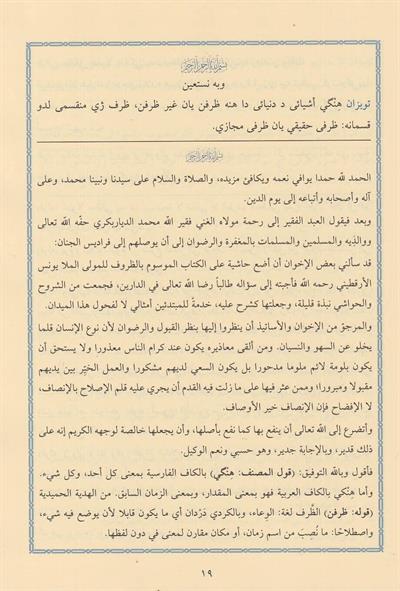 بسم الله الرحمن الرحيم
وبه نستعين
تويزان هِنْكي أشيائى د دنيائى دا هنه ظرفن يان غير ظرفن، ظرف ژي منقسمى لدو
قسمانه: ظرفى حقيقي يان ظرفى مجازي.
بسم الله الرحمن الرحيم
الحمد لله حمدا يوافي نعمه ويكافئ مزيده، والصلاة والسلام على سيدنا ونبينا محمد، وعلى
آله وأصحابه وأتباعه إلى يوم الدين.
وبعد فيقول العبد الفقير إلى رحمة مولاه الغني فقير الله محمد الدياربكري حفّه الله تعالى
ووالديه والمسلمين والمسلمات بالمغفرة والرضوان إلى أن يوصلهم إلى فراديس الجنان:
قد سألني بعض الإخوان أن أضع حاشية على الكتاب الموسوم بالظروف للمولى الملا يونس
الأرقطيني رحمه الله فأجبته إلى سؤاله طالباً رضا الله تعالى في الدارين، فجمعت من الشروح
والحواشي نبذة قليلة، وجعلتها كشرح عليه، خدمةً للمبتدئين أمثالي لا لفحول هذا الميدان.
والمرجوّ من الإخوان والأساتيذ أن ينظروا إليها بنظر القبول والرضوان لأن نوع الإنسان قلما
يخلو عن السهو والنسيان. ومن ألقى معاذيره يكون عند كرام الناس معذورا ولا يستحق أن
يكون بلومة لائم ملوما مدحورا بل يكون السعي لديهم مشكورا والعمل الخيّر بين يديهم
مقبولا ومبرورا؛ وممن عثر فيها على ما زلت فيه القدم أن يجري عليه قلم الإصلاح بالإنصاف،
لا الإفضاح فإن الإنصاف خير الأوصاف.
وأتضرع إلى الله تعالى أن ينفع بها كما نفع بأصلها، وأن يجعلها خالصة لوجهه الكريم إنه على
ذلك قدير، وبالإجابة جدير، وهو حسبي ونعم الوكيل.
فأقول وبالله التوفيق: (قول المصنف: هِنْكي) بالكاف الفارسية بمعنى كل أحد، وكل شيء.
وأما هِنْكي بالكاف العربية فهو بمعنى المقدار، وبمعنى الزمان السابق. من الهدية الحميدية
(قوله: ظرفن) الظَّرف لغة: الوِعاء، وبالكردي دَرْدان أي ما يكون قابلا لأن يوضع فيه شيء،
واصطلاحًا: ما نُصِبَ من اسم زمان، أو مكان مقارن لمعنى في دون لفظها.
١٩